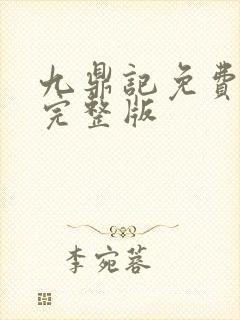 九鼎記免費
完整版
李宛蓉